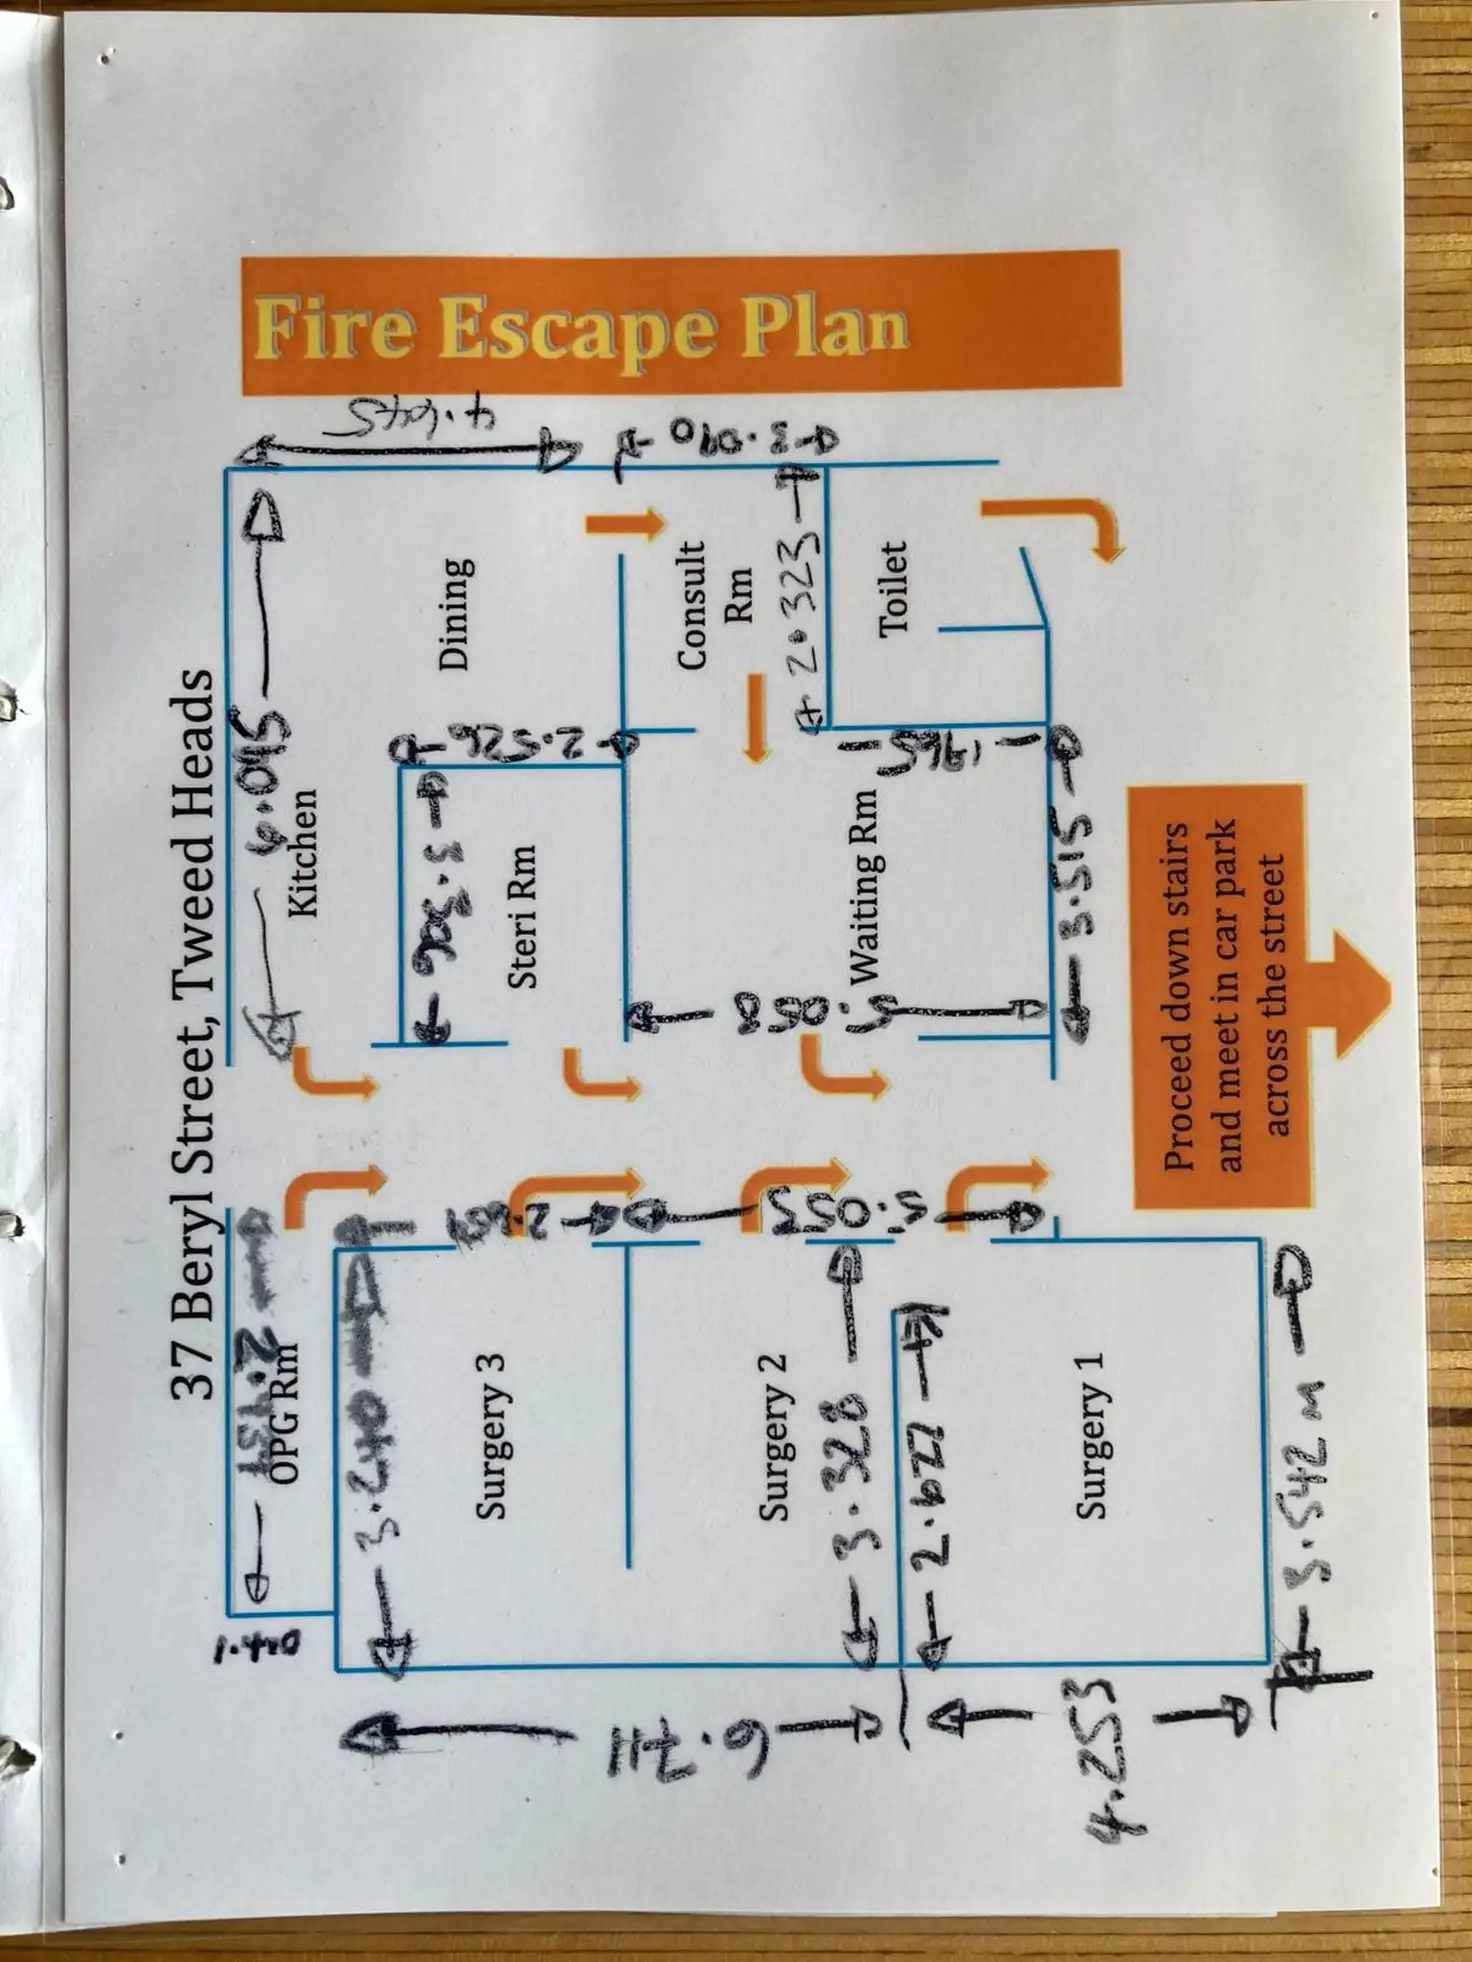 37 Beryl Street, Tweed Heads
Fire Escape Plan
1.420
OPG Rm
6.015
Kitchen
4.645
3.240
Surgery 3
3.306
Steri Rm
2.526
Dining
6.711
Surgery 2
3.328
5.055
5.058
Waiting Rm
Consult
Rm
3.090
2.323
1.965
Toilet
2.627
Surgery 1
4.253
3.542 m
3.515
Proceed down stairs
and meet in car park
across the street